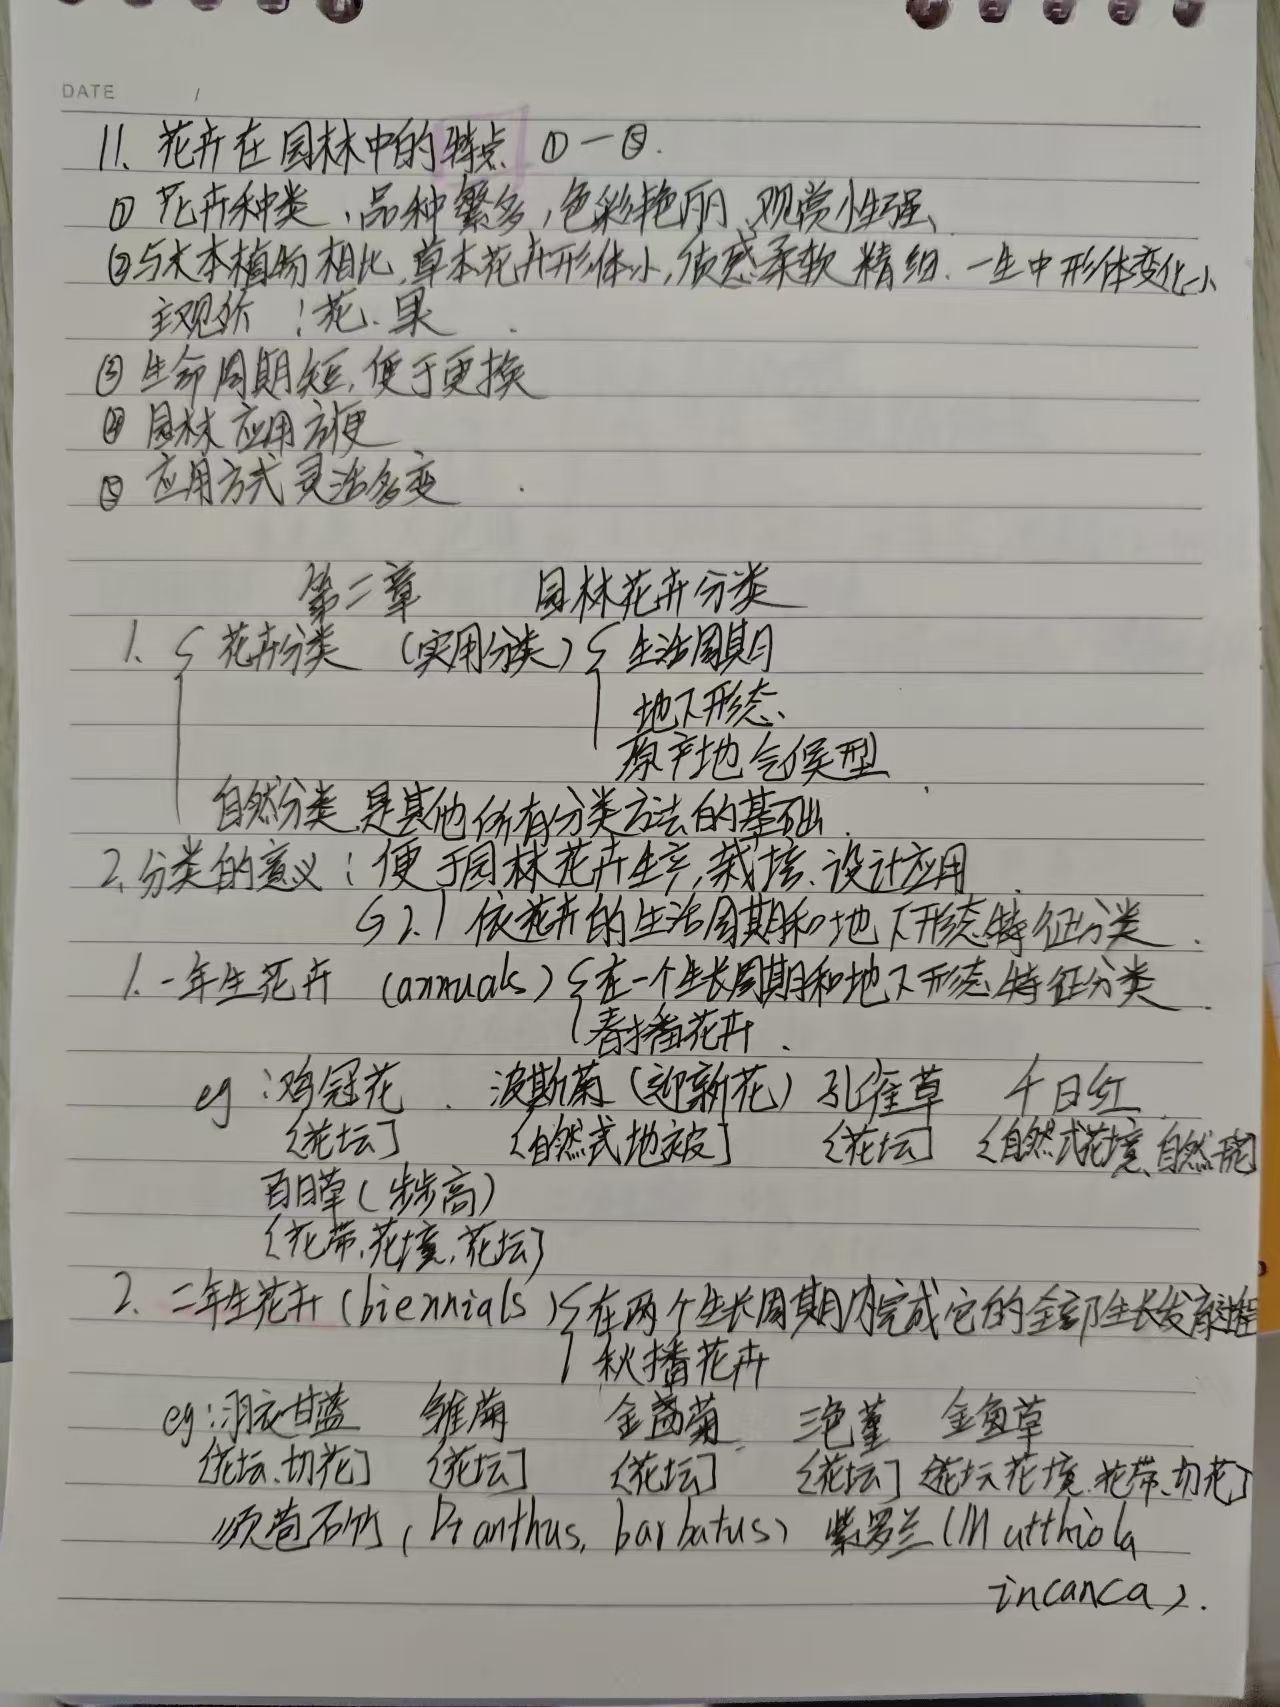 DATE /
11. 花卉在园林中的特点 ①—⑤.
① 花卉种类、品种繁多,色彩艳丽、观赏性强、
②与木本植物相比,草本花卉形体小,质感柔软 精细.一生中形体变化小
主观价:花、果.
③ 生命周期短,便于更换
④ 园林应用方便
⑤ 应用方式灵活多变.
第二章 园林花卉分类
1. { 花卉分类 (实用分类) { 生活周期
地下形态、
原产地气候型
自然分类 是其他所有分类方法的基础.
2.分类的意义:便于园林花卉生产,栽培、设计应用
§2.1 依花卉的生活周期和地下形态特征分类.
1. 一年生花卉 (annuals) { 在一个生长周期和地下形态特征分类
春播花卉.
eg:鸡冠花. 波斯菊(迎新花) 孔雀草 千日红
〔花坛] 〔自然式地被] 〔花坛] 〔自然式花境、自然
百日草(步步高)
〔花带,花境,花坛]
2. 二年生花卉(biennials) { 在两个生长周期内完成它的全部生长发育过程
秋播花卉
eg:羽衣甘蓝 雏菊 金盏菊、 三色堇 金鱼草
〔花坛、切花] 〔花坛] 〔花坛] 〔花坛] 〔花坛 花境.花带、切花]
须苞石竹(Dianthus, barbatus) 紫罗兰(Mutthiola
incanca).